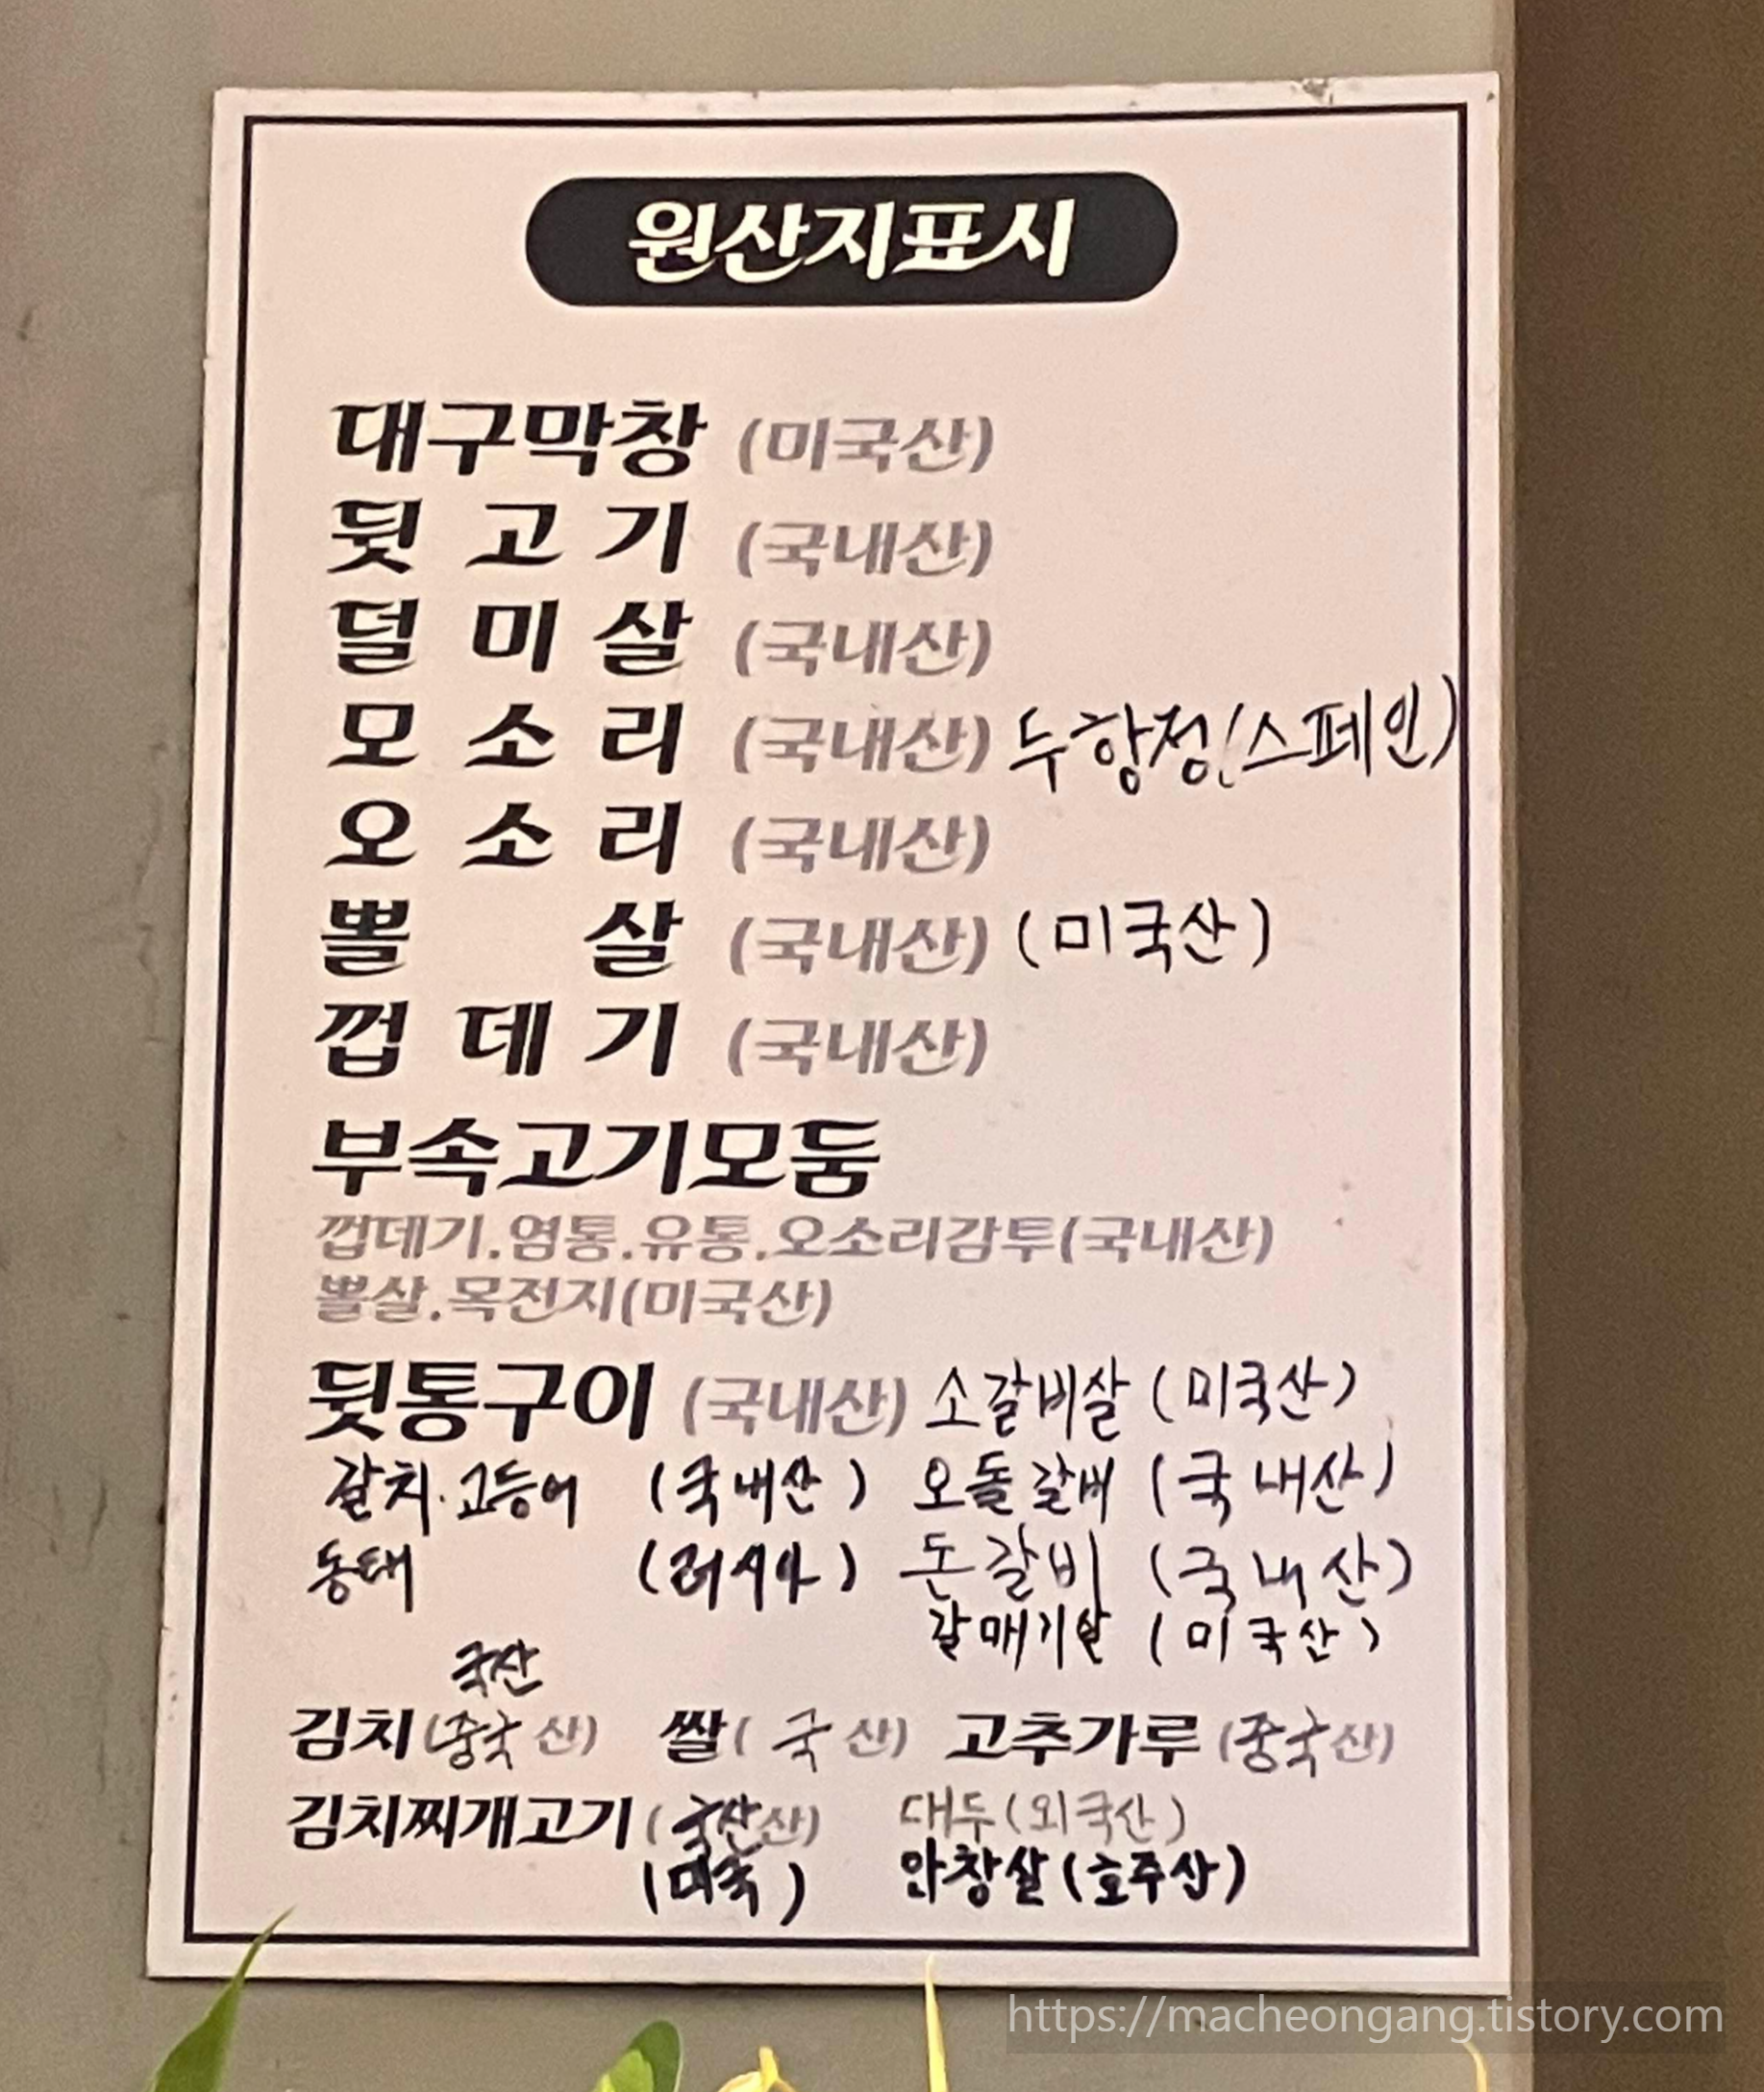 원산지표시
대구막창 (미국산)
뒷 고 기 (국내산)
덜 미 살 (국내산)
모 소 리 (국내산) 두항정(스페인)
오 소 리 (국내산)
뽈 살 (국내산) (미국산)
껍 데 기 (국내산)
부속고기모둠
껍데기.염통.유통.오소리감투(국내산)
뽈살.목전지(미국산)
뒷통구이 (국내산) 소갈비살 (미국산)
갈치.고등어 (국내산) 오돌갈비 (국내산)
동태 (러시아) 돈갈비 (국내산)
갈매기살 (미국산)
국산
김치(중국산) 쌀(국산) 고추가루(중국산)
김치찌개고기(국산산) 대두(외국산)
(미국) 안창살(호주산)
https://macheongang.tistory.com